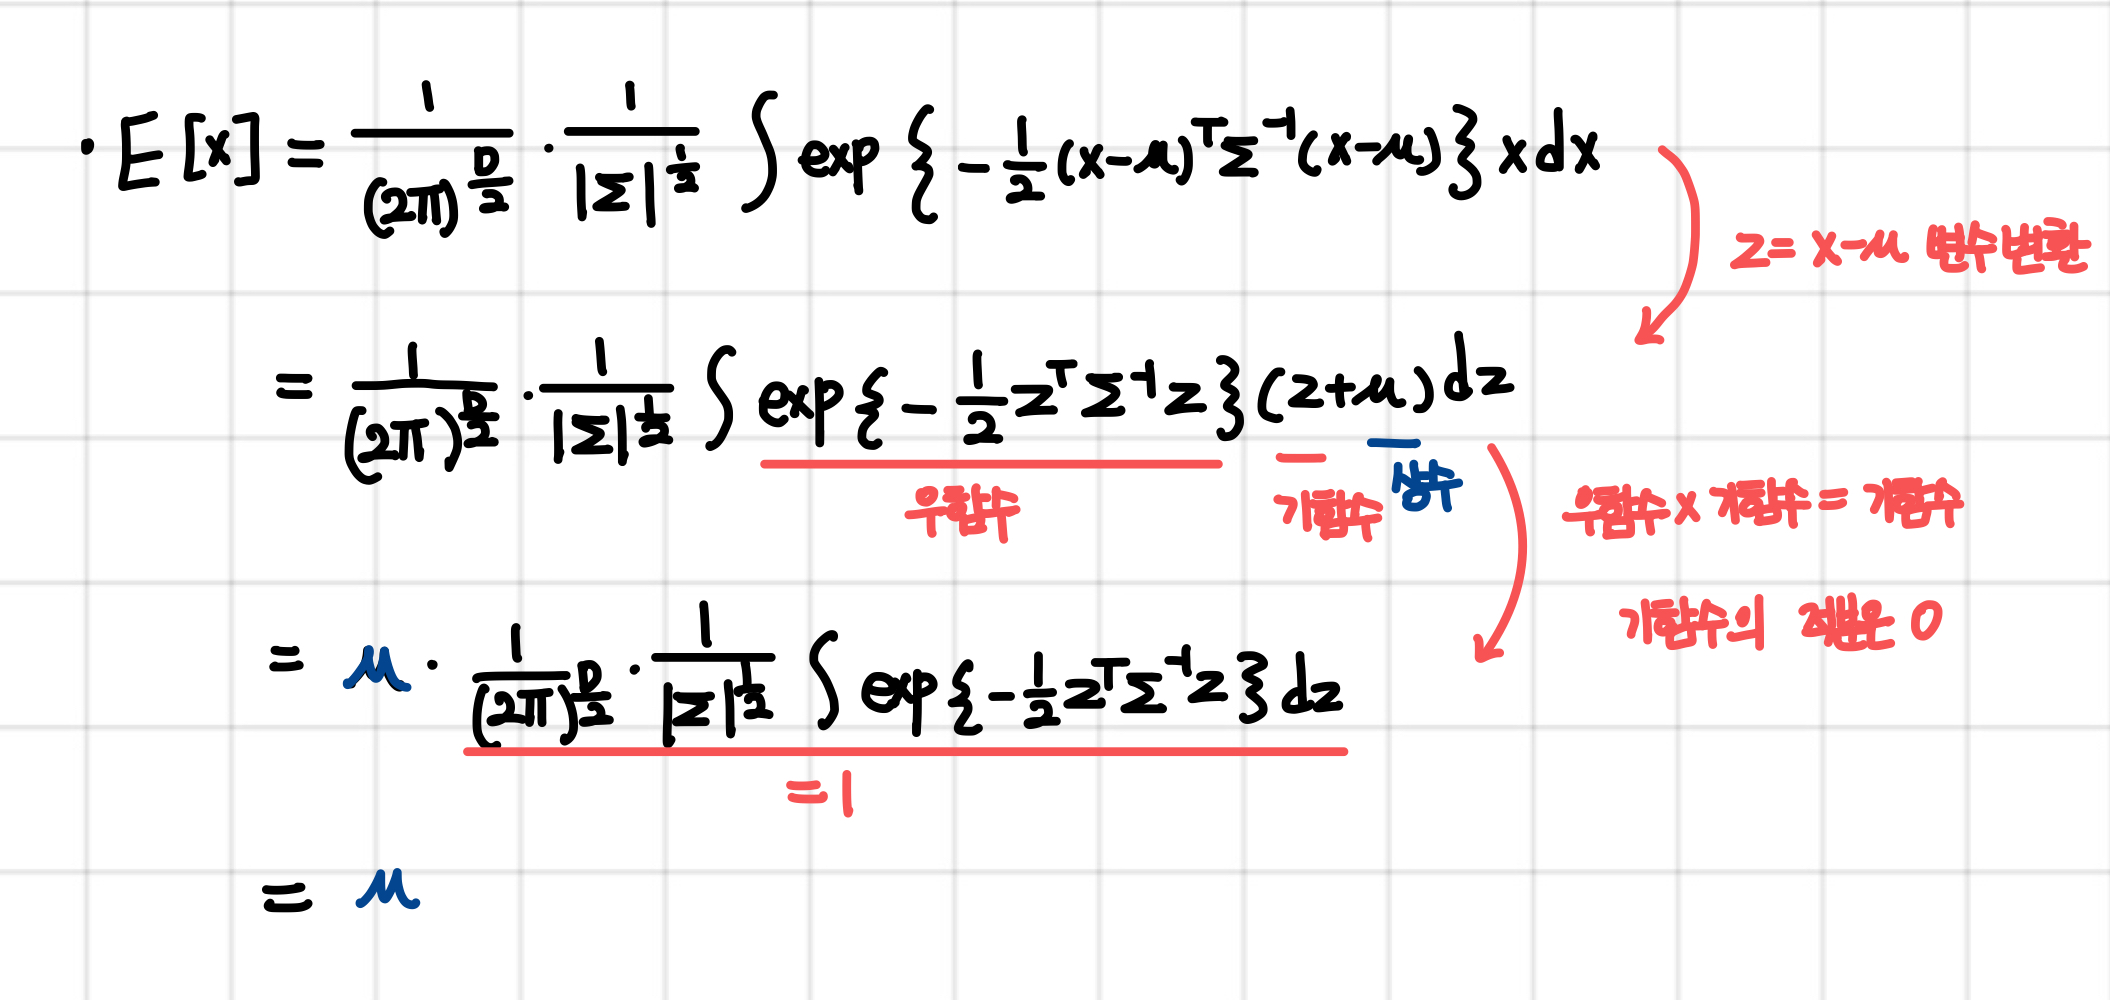 · E[x] = 1/(2π)^(D/2) · 1/|Σ|^(1/2) ∫ exp{-1/2(x-μ)^T Σ^-1 (x-μ)} x dx
z = x-μ 변수변환
= 1/(2π)^(D/2) · 1/|Σ|^(1/2) ∫ exp{-1/2 z^T Σ^-1 z} (z+μ) dz
우함수 기함수 상수
우함수 x 기함수 = 기함수
기함수의 적분은 0
= μ · 1/(2π)^(D/2) · 1/|Σ|^(1/2) ∫ exp{-1/2 z^T Σ^-1 z} dz
= 1
= μ